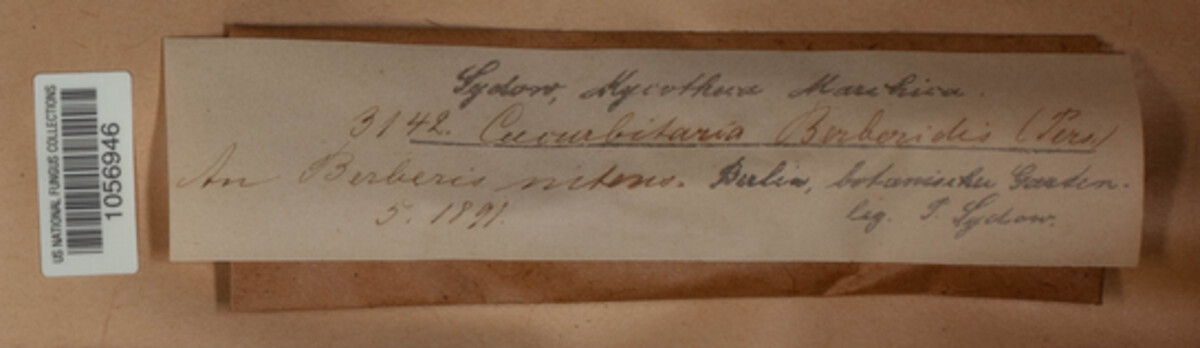 US NATIONAL FUNGUS COLLECTIONS
1056946
Sydow, Mycotheca Marchica.
3142. Cucurbitaria Berberidis (Pers)
An Berberis nitens. Berlin, botanischer Garten.
5. 1891. leg. P. Sydow.